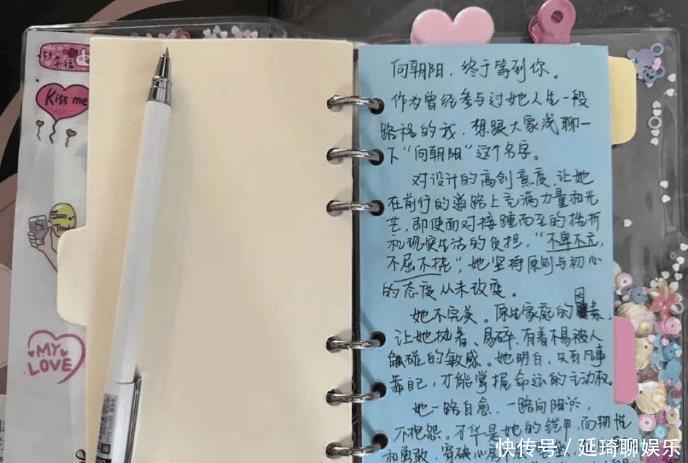 Kiss me
MY LOVE
向朝阳，终于等到你。
作为曾经参与过她人生一段
路程的我，想跟大家浅聊一
下“向朝阳”这个名字。
对设计的高创意度，让她
在前行的道路上充满力量和光
芒，即使面对接踵而至的挫折
和现实生活的负担，“不卑不亢，
不屈不挠”，她坚持原则与初心
的态度从未改变。
她不完美。原生家庭的因素，
让她执着、易碎、有着不易被人
触碰的敏感。她明白，只有凡事
靠自己，才能掌握命运的主动权。
她一路自愈，一路向阳，
不抱怨。才华是她的铠甲，而韧性
和勇敢，
快传号／延琦聊娱乐